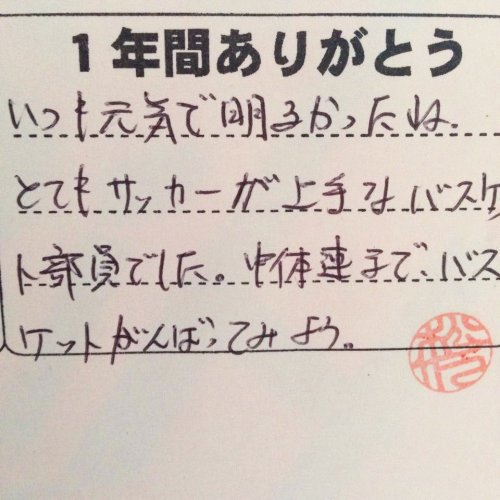 1年間ありがとう
いつも元気で明るかったね.
とてもサッカーが上手なバスケ
ト部員でした。中体連まで、バス
ケットがんばってみよう。